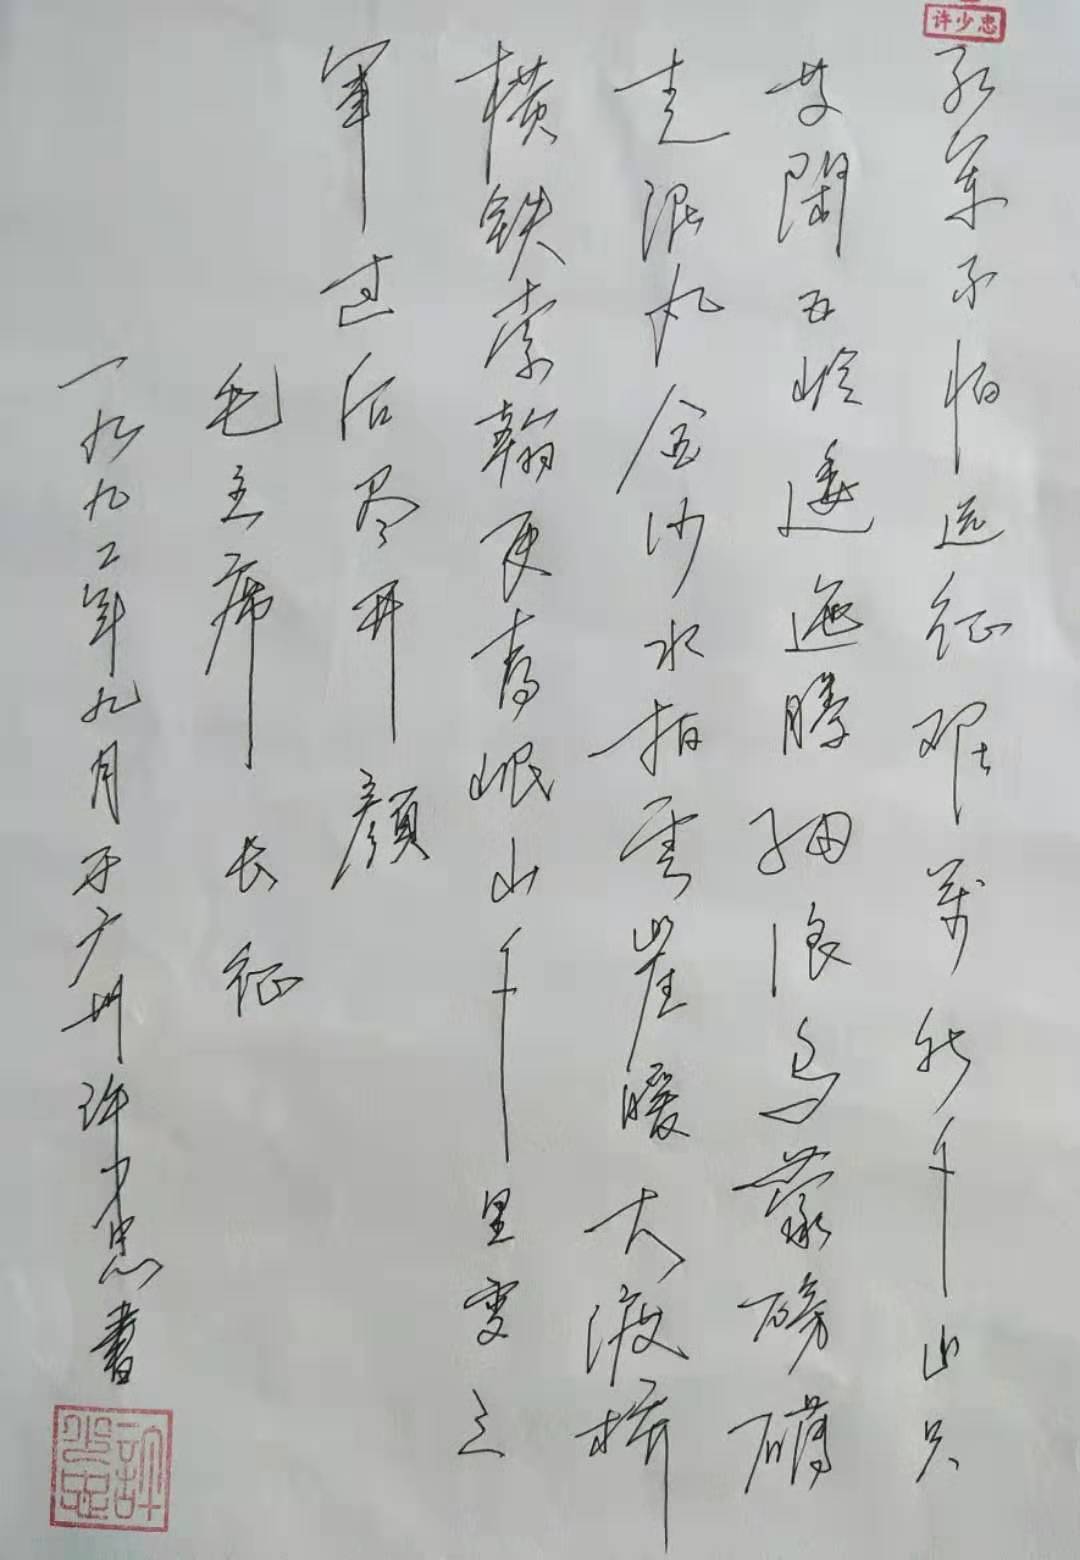 许少忠
红军不怕远征难萬水千山只
等闲五岭逶迤腾细浪乌蒙磅礴
走泥丸金沙水拍雲崖暖大渡桥
横铁索翰更喜岷山千里雪三
軍过后尽开顔
毛主席 长征
一九九二年九月于广州许少忠書
許少忠